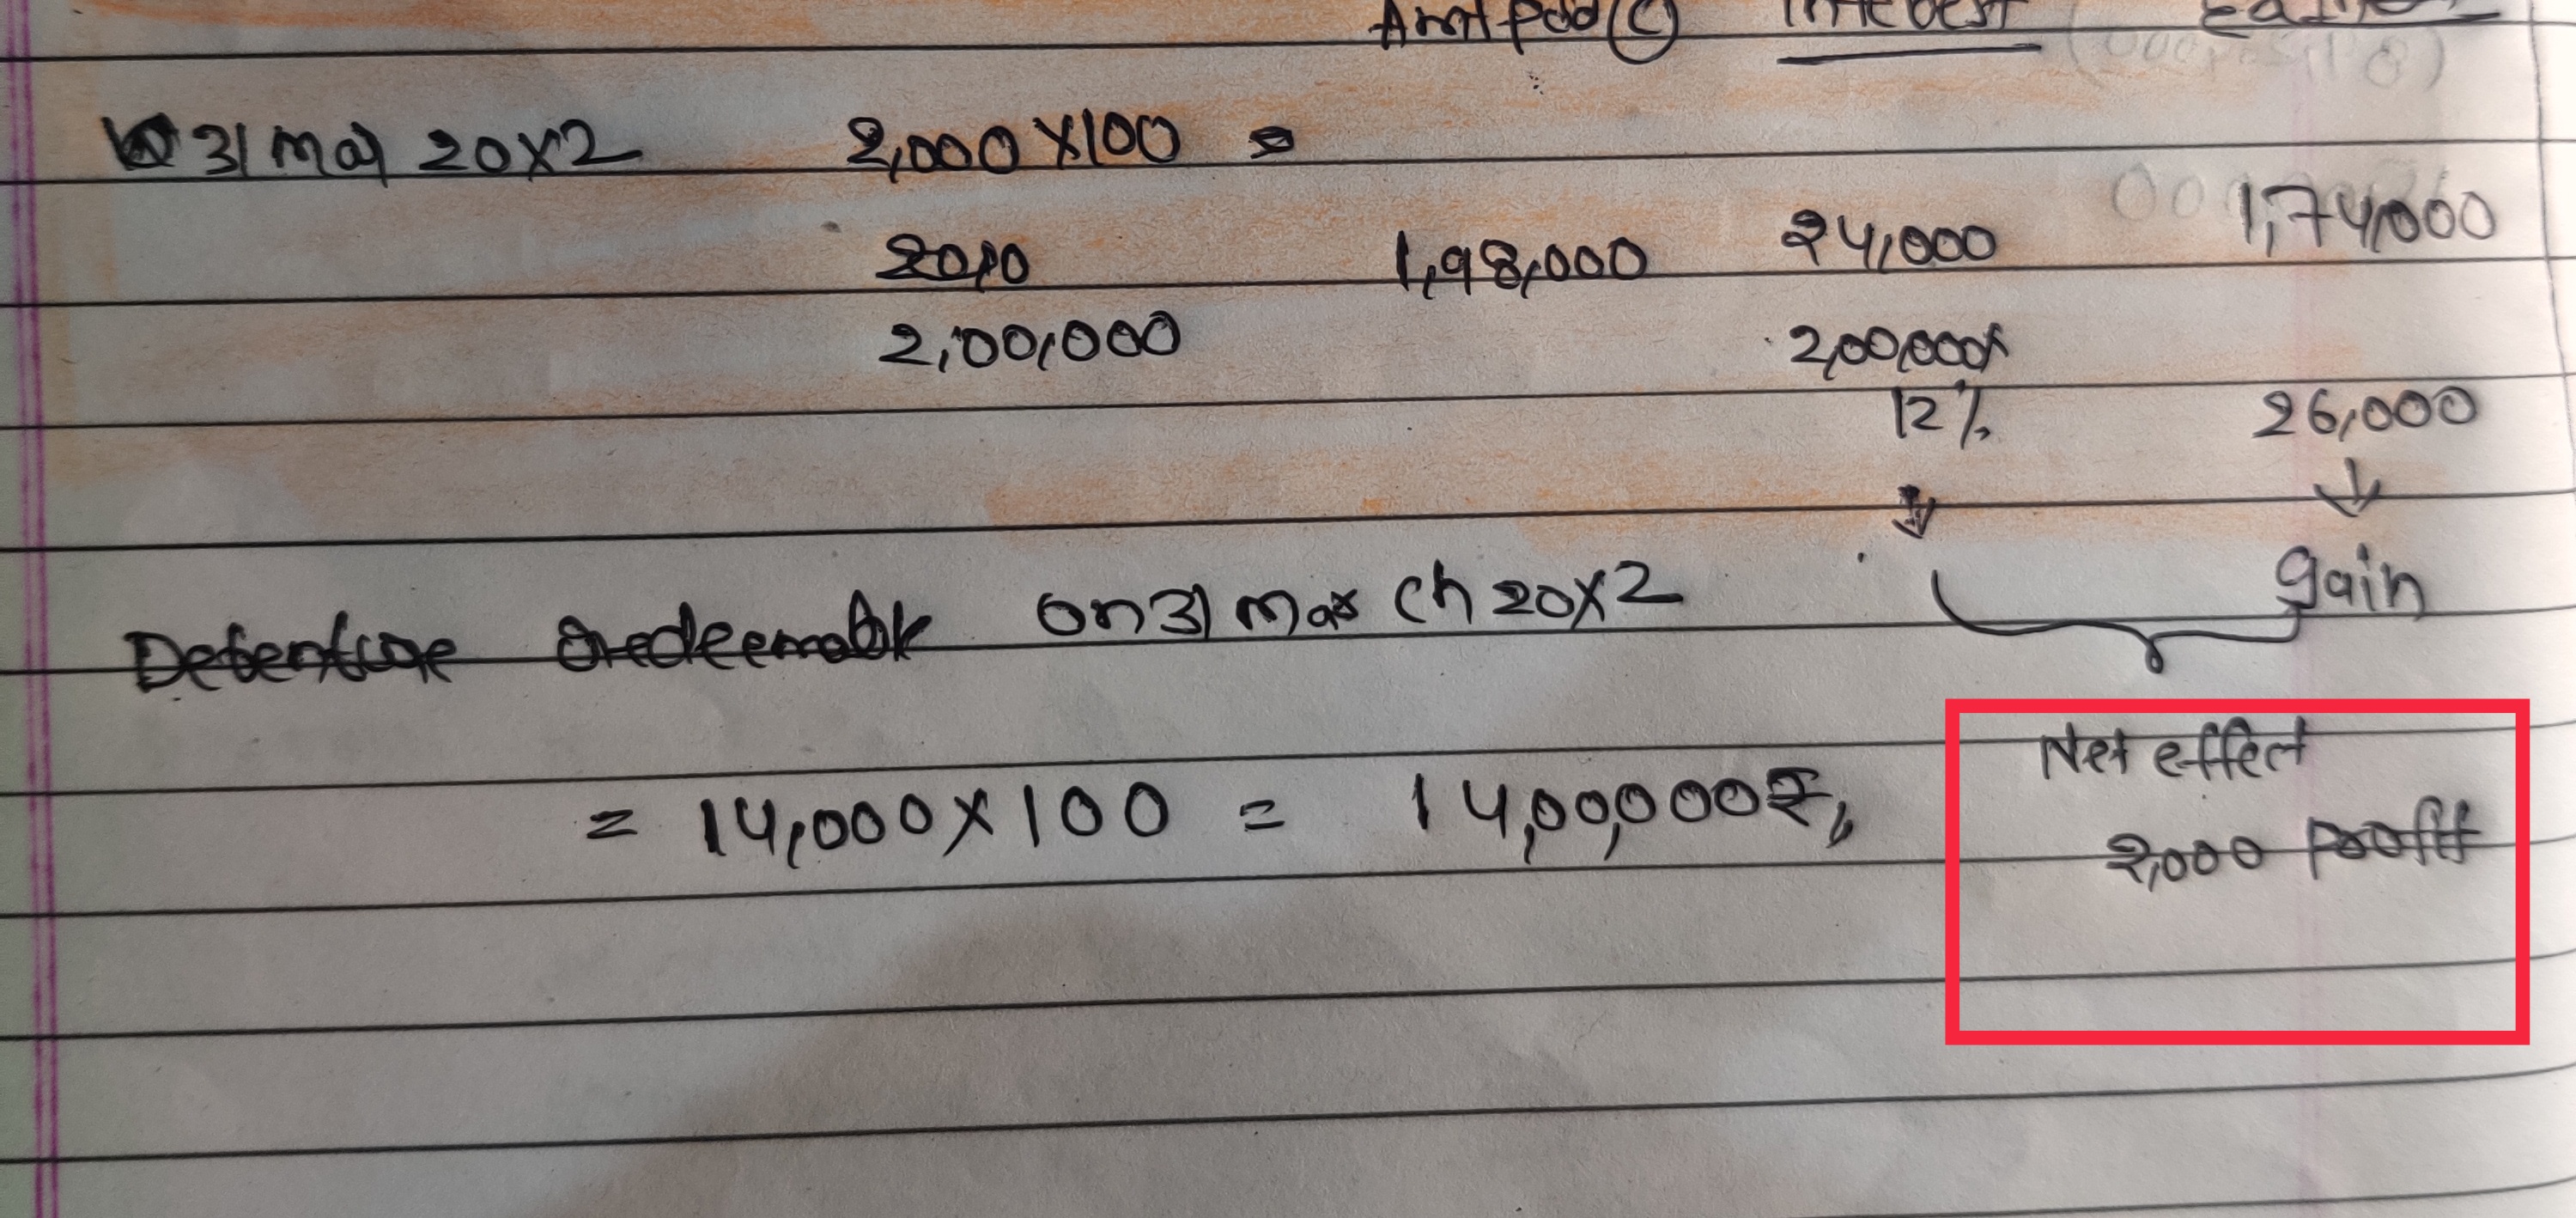 Amt paid (C) Interest
31 Mar 20X2 2,000 X 100 =
1,98,000 24,000 1,74,000
2,00,000 2,00,000X
12% 26,000
↓ ↓
gain
Debenture redeemable on 31 March 20X2
Net effect
= 14,000 X 100 = 14,00,000₹
2,000 profit